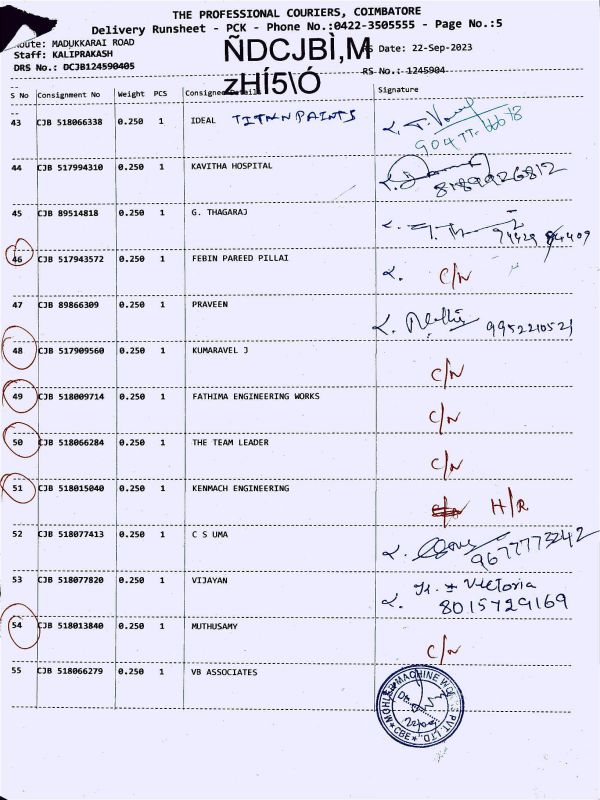 THE PROFESSIONAL COURIERS, COIMBATORE
Delivery Runsheet - PCK - Phone No.:0422-3505555 - Page No.:5
Route: MADUKKARAI ROAD
ÑDCJBÌ,M
Date: 22-Sep-2023
Staff: KALIPRAKASH
DRS No.: DCJB124590405
zHÍ5\Ó
RS No.: 1245904
S No Consignment No Weight PCS Consignee Signature
43 CJB 518066338 0.250 1 IDEAL TITAN PAINTS
44 CJB 517994310 0.250 1 KAVITHA HOSPITAL 8189926812
45 CJB 89514818 0.250 1 G. THAGARAJ
46 CJB 517943572 0.250 1 FEBIN PAREED PILLAI C/N
47 CJB 89866309 0.250 1 PRAVEEN 9952210521
48 CJB 517909560 0.250 1 KUMARAVEL J C/N
49 CJB 518009714 0.250 1 FATHIMA ENGINEERING WORKS C/N
50 CJB 518066284 0.250 1 THE TEAM LEADER C/N
51 CJB 518015040 0.250 1 KENMACH ENGINEERING H/R
52 CJB 518077413 0.250 1 C S UMA 9677773242
53 CJB 518077820 0.250 1 VIJAYAN Victoria
8015729169
54 CJB 518013840 0.250 1 MUTHUSAMY C/N
55 CJB 518066279 0.250 1 VB ASSOCIATES
MACHINE WORKS PVT. LTD. CBE